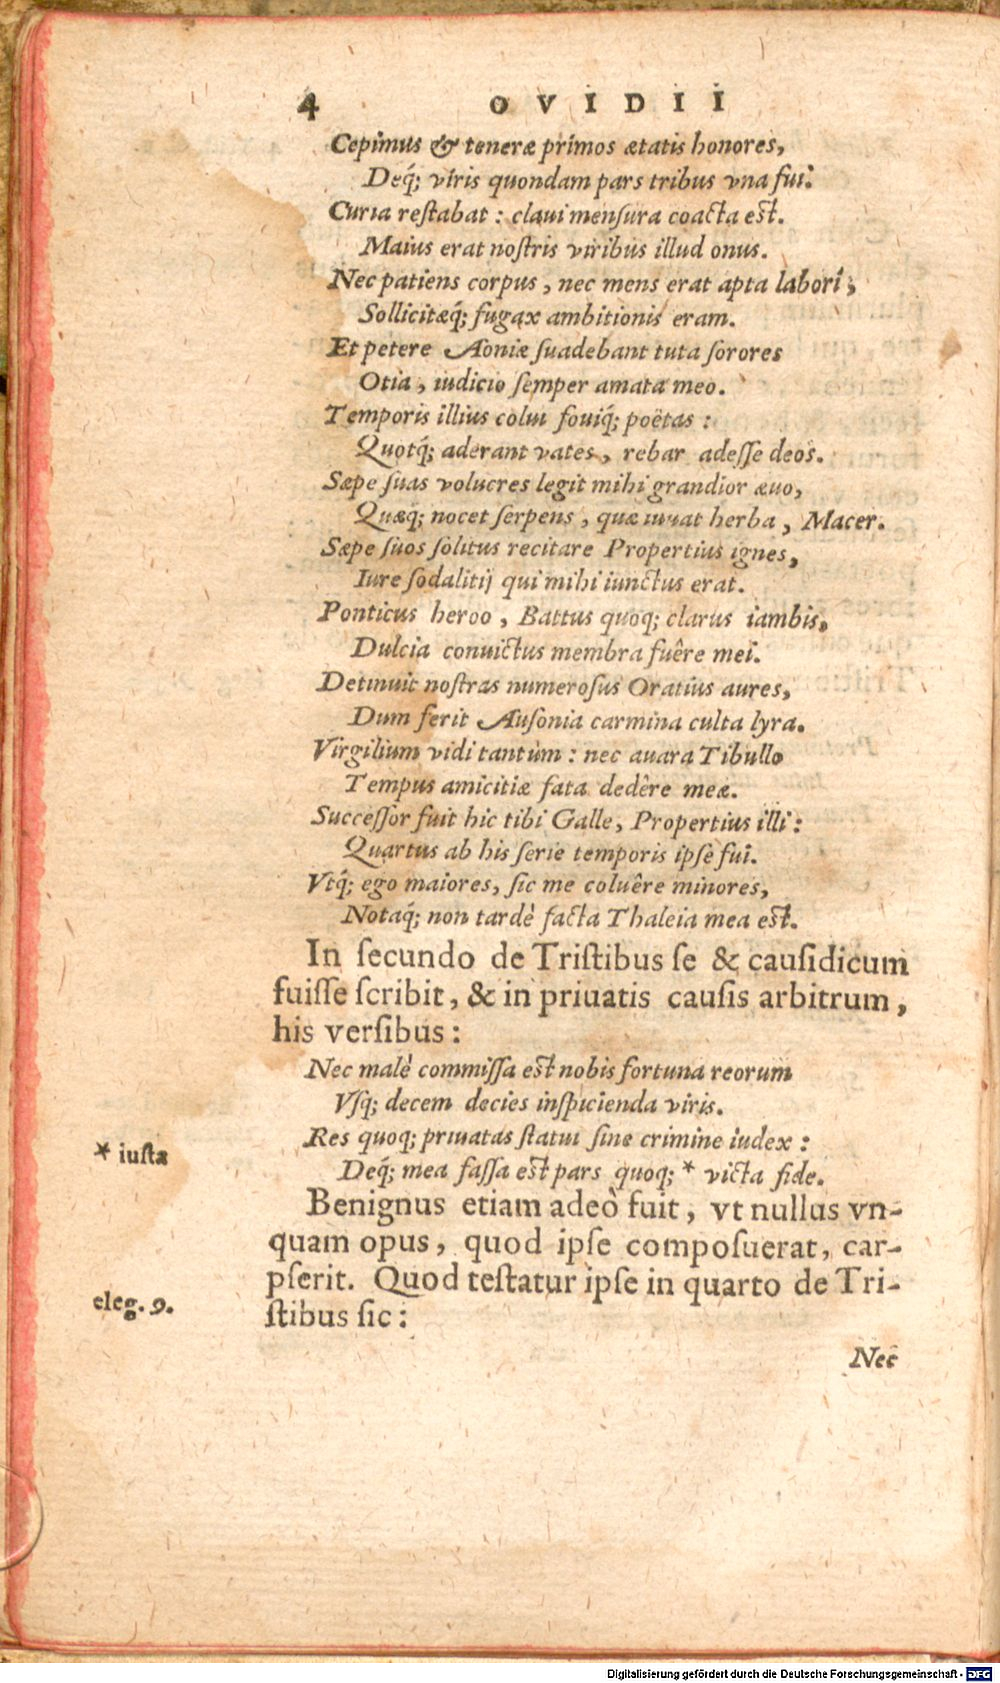 4 OVIDII
Cepimus & teneræ primos ætatis honores,
Deq́; viris quondam pars tribus vna fui.
Curia restabat : claui mensura coacta est.
Maius erat nostris viribus illud onus.
Nec patiens corpus, nec mens erat apta labori,
Sollicitæq́; fugax ambitionis eram.
Et petere Aoniæ suadebant tuta sorores
Otia, iudicio semper amata meo.
Temporis illius colui fouiq́; poëtas :
Quotq́; aderant vates, rebar adesse deos.
Sæpe suas volucres legit mihi grandior æuo,
Quæq́; nocet serpens, quæ iuuat herba, Macer.
Sæpe suos solitus recitare Propertius ignes,
Iure sodalitij qui mihi iunctus erat.
Ponticus heroo, Battus quoq; clarus iambis,
Dulcia conuictus membra fuêre mei.
Detinuit nostras numerosus Oratius aures,
Dum ferit Ausonia carmina culta lyra.
Virgilium vidi tantùm : nec auara Tibullo
Tempus amicitiæ fata dedêre meæ.
Successor fuit hic tibi Galle, Propertius illi :
Quartus ab his serie temporis ipse fui.
Vtq́; ego maiores, sic me coluêre minores,
Notaq́; non tardè facta Thaleia mea est.
In secundo de Tristibus se & causidicum
fuisse scribit, & in priuatis causis arbitrum,
his versibus :
Nec malè commissa est nobis fortuna reorum
Vsq́; decem decies inspicienda viris.
Res quoq; priuatas statui sine crimine iudex :
* iustæ
Deq́; mea fassa est pars quoq; * victa fide.
Benignus etiam adeò fuit, vt nullus vn-
quam opus, quod ipse composuerat, car-
pserit. Quod testatur ipse in quarto de Tri-
eleg. 9.
stibus sic :
Nec
Digitalisierung gefördert durch die Deutsche Forschungsgemeinschaft - DFG